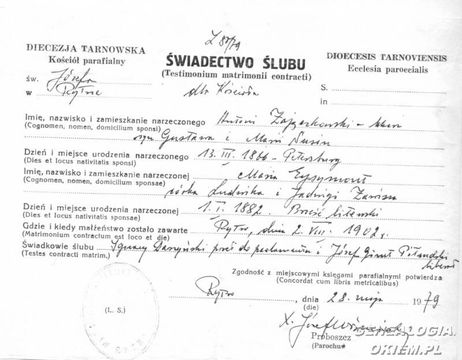 L 87/79
DIECEZJA TARNOWSKA
Kościół parafialny
św. Józefa
w Rytrze
ŚWIADECTWO ŚLUBU
(Testimonium matrimonii contracti)
dla Kościoła
DIOECESIS TARNOVIENSIS
Ecclesia paroecialis
S.
in
Imię, nazwisko i zamieszkanie narzeczonego Antoni
(Cognomen, nomen, domicilium sponsi) syn Gustawa i Marii
Dzień i miejsce urodzenia narzeczonego 13. III. 1866 - Petersburg
(Dies et locus nativitatis sponsi)
Imię, nazwisko i zamieszkanie narzeczonej Maria Eysymont
(Cognomen, nomen, domicilium sponsae) córka Ludwika i Jadwigi
Dzień i miejsce urodzenia narzeczonej 1. II. 1882 Brześć Litewski
(Dies et locus nativitatis sponsae)
Gdzie i kiedy małżeństwo zostało zawarte Rytro, dnia 2. VIII. 1902 r.
(Matrimonium contractum est loco et die)
Świadkowie ślubu: Ignacy Daszyński poseł do parlamentu i Józef Ginet Piłsudski
(Testes contracti matrim.)
Zgodność z miejscowymi księgami parafialnymi potwierdza
(Concordat cum libris metricalibus)
Rytro, dnia 28. maja 1979
(die)
(L. S.)
X. Józef
Proboszcz
(Parochus)
GENEALOGIA
OKIEM.PL